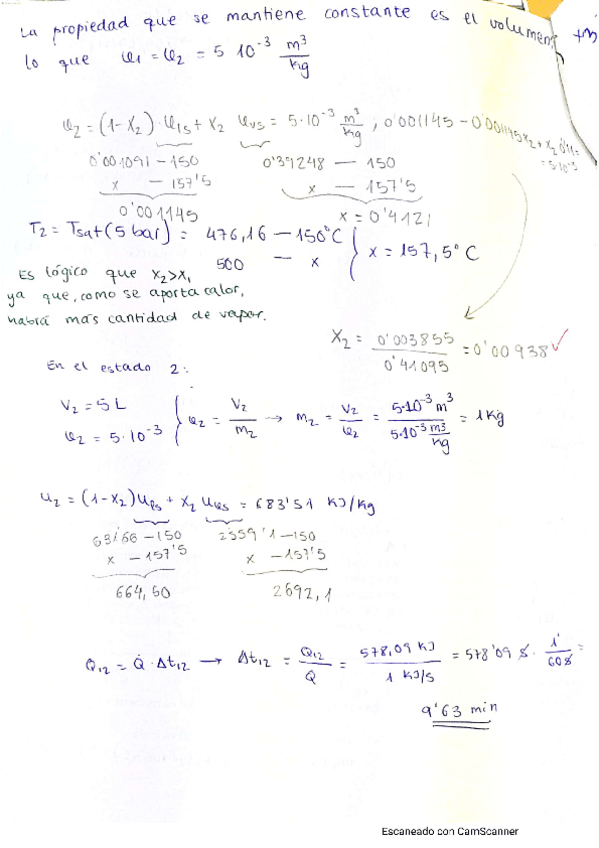 La propiedad que se mantiene constante es el volumen,
lo que υ₁ = υ₂ = 5 10⁻³ m³/kg
υ₂ = (1-X₂) · υls + X₂ υvs = 5·10⁻³ m³/kg ; 0'001145 - 0'001145x₂ + x₂ 0'41 = 5·10⁻³
0'001091 - 150 0'39248 — 150
x — 157'5 x — 157'5
0'001145 x = 0'4121
T₂ = Tsat (5 bar) = 476,16 — 150°C } x = 157,5° C
500 — x
Es lógico que x₂>x₁
ya que, como se aporta calor,
habrá más cantidad de vapor.
X₂ = 0'003855 / 0'41095 = 0'00938 ✓
En el estado 2:
V₂ = 5 L } υ₂ = V₂/m₂ → m₂ = V₂/υ₂ = 5·10⁻³ m³ / 5·10⁻³ m³/kg = 1 kg
υ₂ = 5·10⁻³
u₂ = (1-X₂) uls + x₂ uvs = 683'51 KJ/kg
631'66 - 150 2559'1 - 150
x - 157'5 x - 157'5
664,50 2692,1
Q₁₂ = Q̇ · Δt₁₂ → Δt₁₂ = Q₁₂/Q̇ = 578,09 KJ / 1 KJ/s = 578'09 s · 1'/60s =
9'63 min
Escaneado con CamScanner